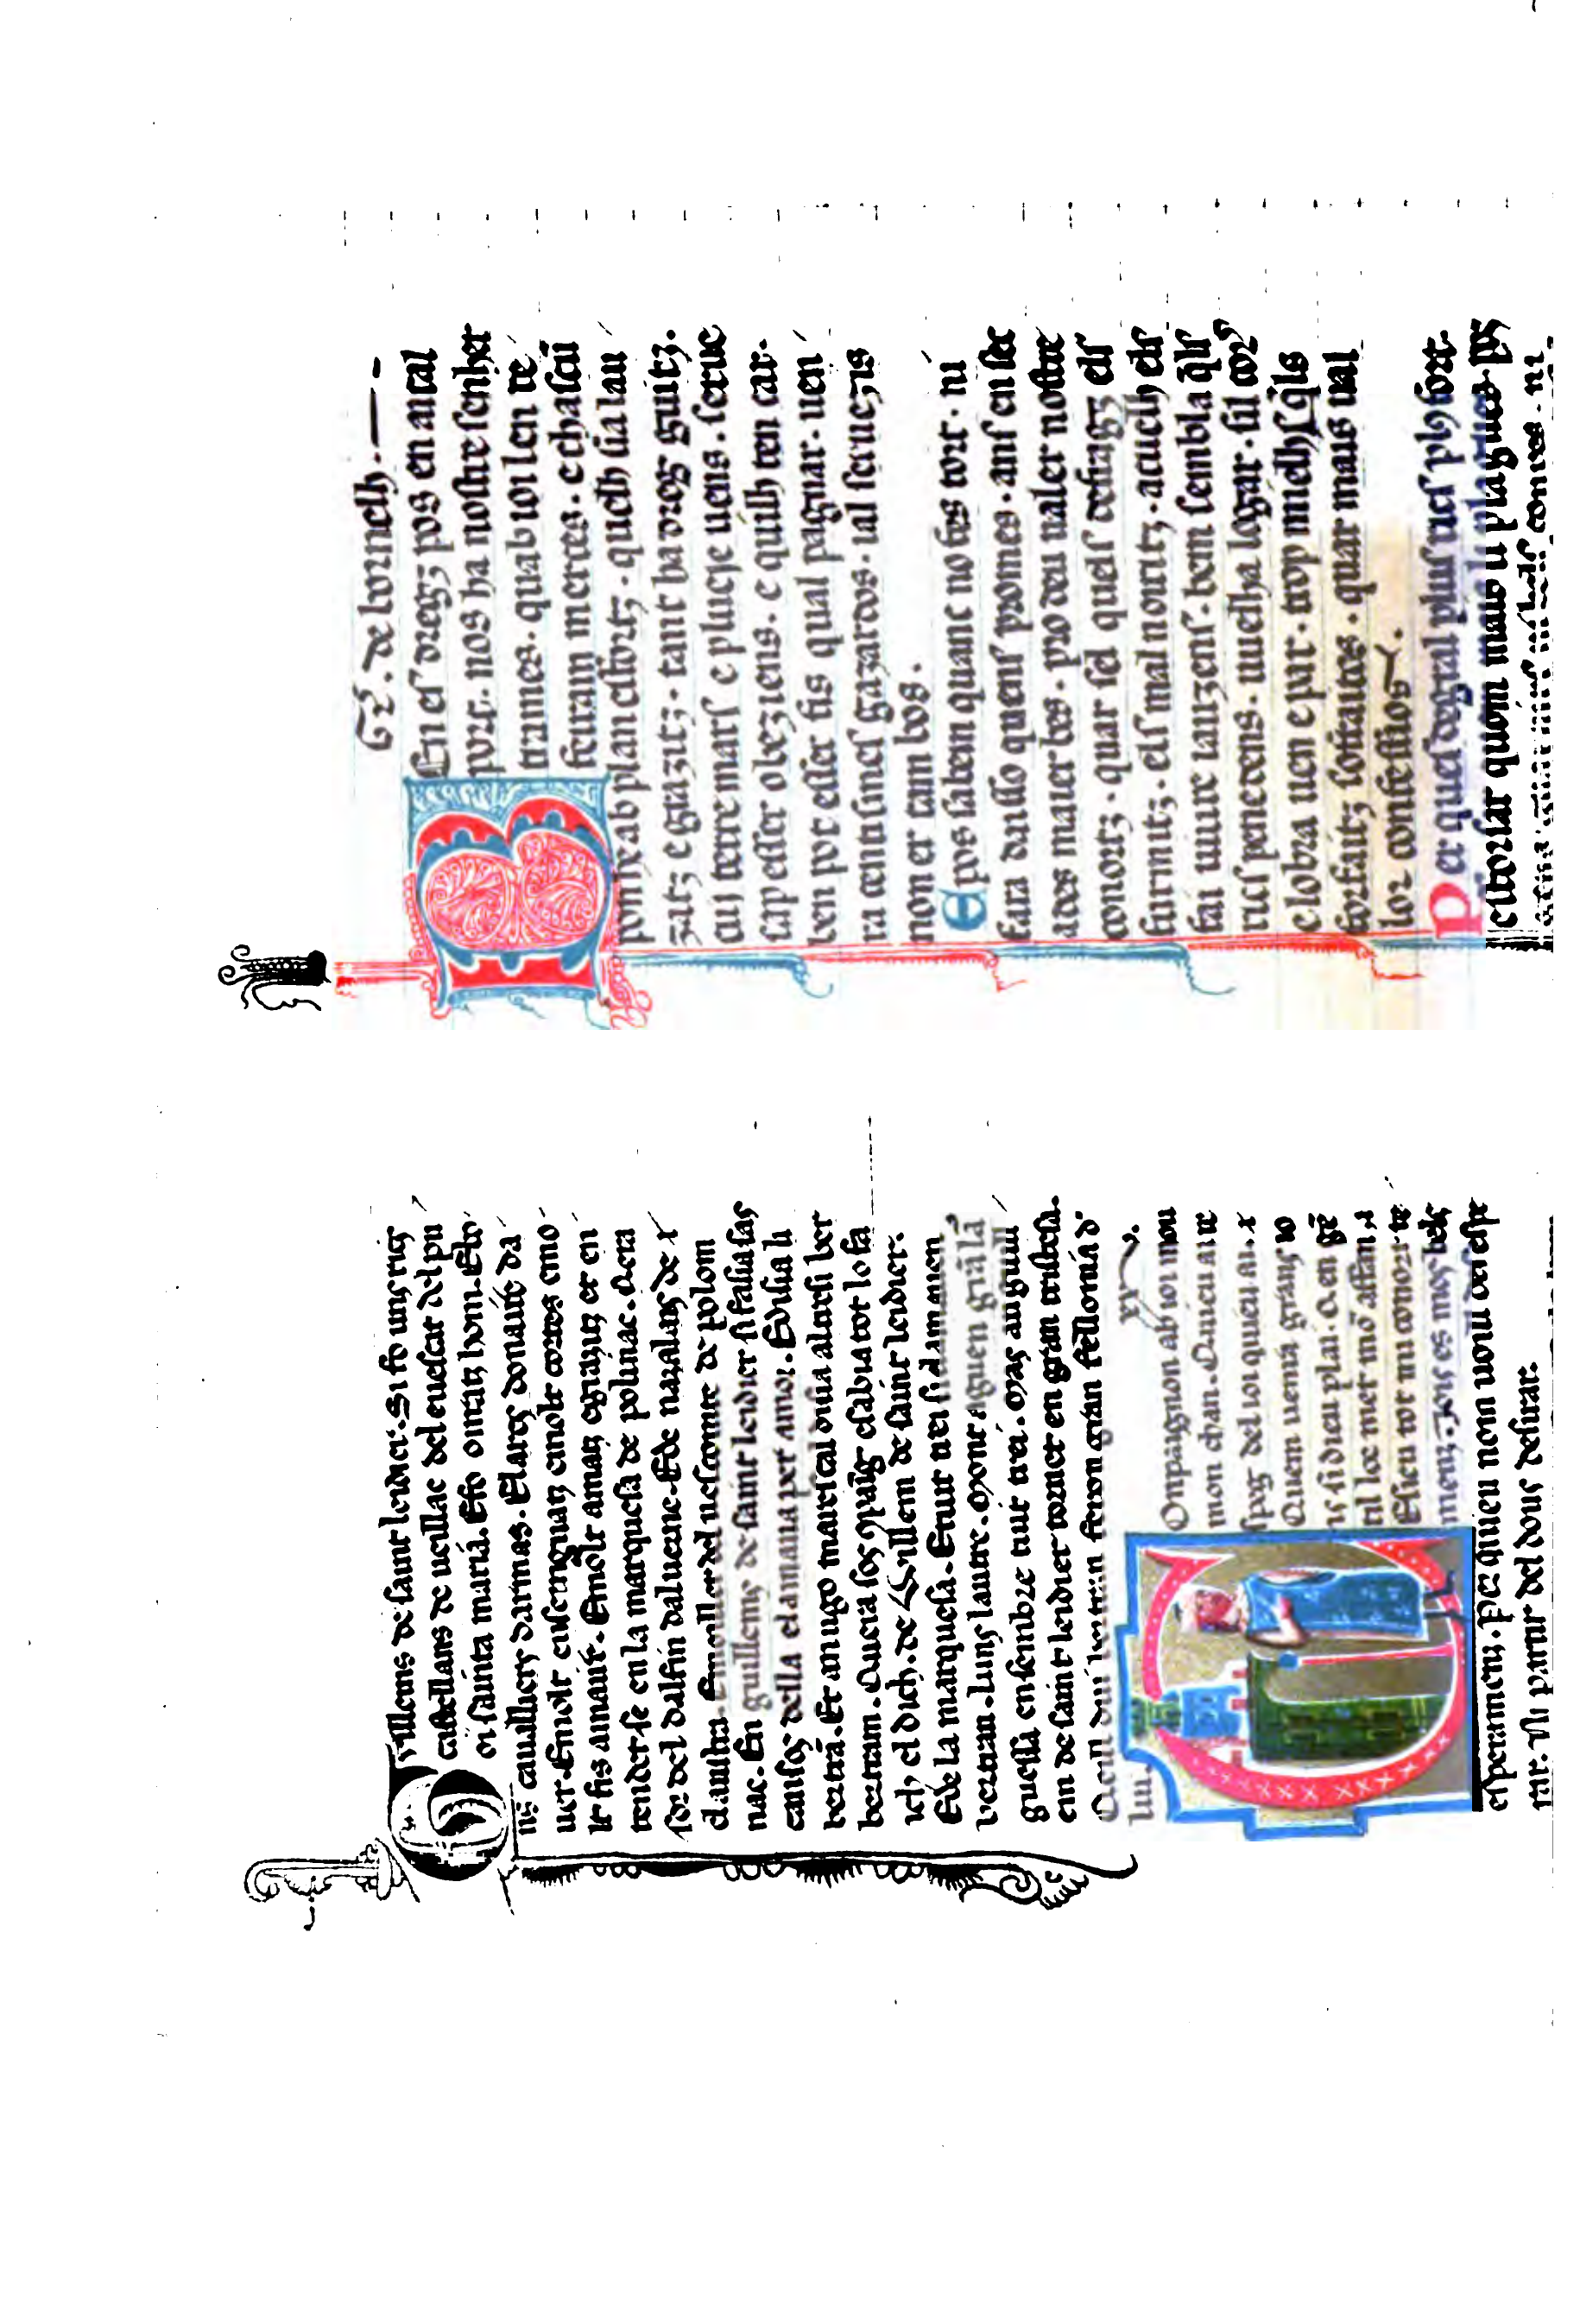 Uillems de saint leidier. Si fo uns rics
castellans de ueillac del euescat del pu
oi sainta maria. Efo onratz hom. Ebo
ns caualliers darmas. Elarcs donaire da
uer. Emolt enseingnatz emolt cortes emo
lt fis amaire. Emolt amatz egrazitz et en
tendet se en la marquesa de polinac. Qera
sor del dalfin daluerne. Ede nazalais de
claustra. Emoiller del uescomte de polom
nac. En guillems de saint leidier si fasia sas
cansos della elamaua per amor. Edisia li
bertran. Et an ugo marescal disia altresi ber
bertram. Quera sos compaigz esabia tot lo fa
ich el dich. de Guillem de saint leidier.
Ede la marquesa. Etuit trei si clamauen
bertran. Luns lautre. Mont aguen gran la
guessa ensembre tuit trei. Mas an guilli
em de saint leidier tornet en gran tristesa.
Qen
lui.
Ompaignon ab ioi mou
mon chan. Quieu ai re
spos del ioi quieu ai.
Quem uenia grans io
is si dieu plai. Q en
tal loc met mo affan
Esieu tot mi conort
menz. Jois es mos bels
esperamenz. Per quieu nom uoill
rar. Ni partir del dous desirar.
Gr. de bornelh
En es dregz pos en aital
port. nos ha nostre senher
trames. quab ioi len re
feiram merces. e chascu
ponhe ab plan esfortz. quelh sia lau
zatz e grazitz. tant ha dreg guitz.
cui terre mars e plueie uens. seruc
tap esser obeziens. e quilh ten car.
ben pot esser fis qual pagar. uen
ra centisimes gazardos. ial seruezis
non er tam bos.
E pos sabem quanc no fes tort. ni
fara daisso quens promes. ans en ser
ades maier bes. pro deu ualer nostre
conortz. quar sel quels
furnitz. els mal noiritz. acuelh els
fai uiure iauzens. bem sembla quls
rics penedens. uuelha logar. sil cors
e lobra uen e par. trop mielhs quls
forfaitz sotraitos. quar mais ual
lor confessios.
Per ques